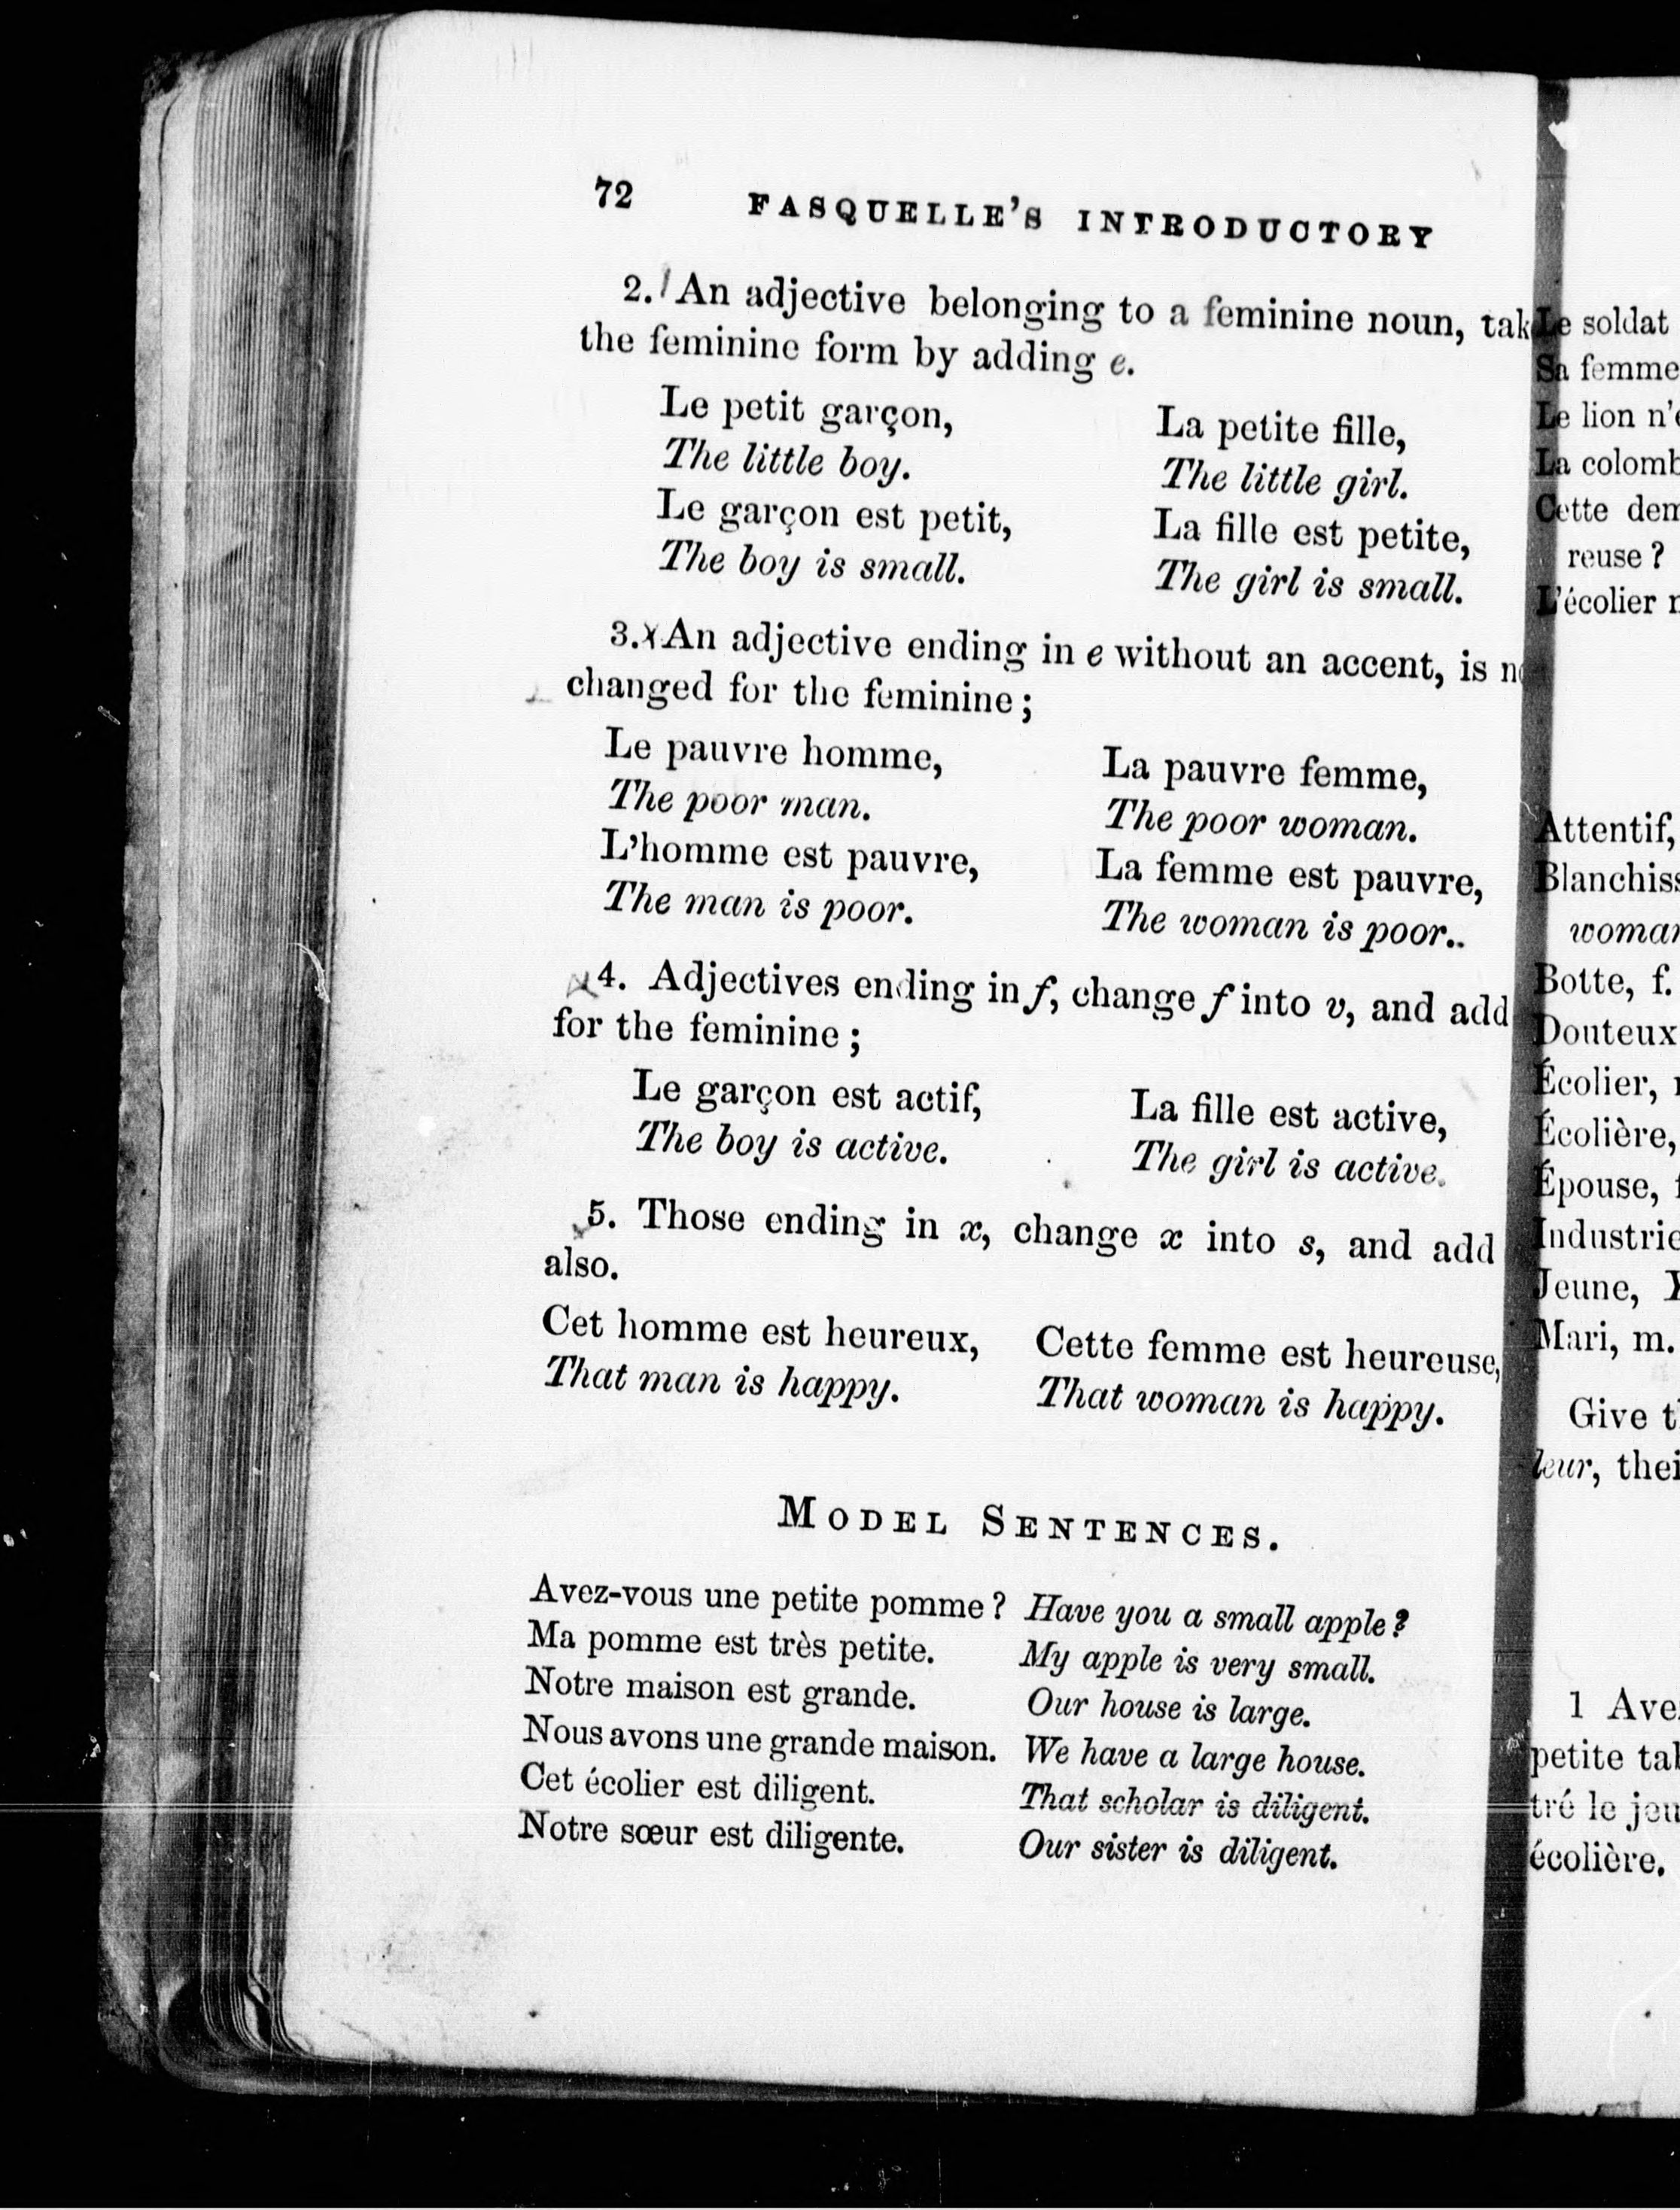 72 FASQUELLE'S INTRODUCTORY
2. An adjective belonging to a feminine noun, tak
the feminine form by adding e.
Le petit garçon, La petite fille,
The little boy. The little girl.
Le garçon est petit, La fille est petite,
The boy is small. The girl is small.
3. An adjective ending in e without an accent, is
changed for the feminine;
Le pauvre homme, La pauvre femme,
The poor man. The poor woman.
L'homme est pauvre, La femme est pauvre,
The man is poor. The woman is poor..
4. Adjectives ending in f, change f into v, and add
for the feminine;
Le garçon est actif, La fille est active,
The boy is active. The girl is active.
5. Those ending in x, change x into s, and add
also.
Cet homme est heureux, Cette femme est heureuse,
That man is happy. That woman is happy.
MODEL SENTENCES.
Avez-vous une petite pomme? Have you a small apple?
Ma pomme est très petite. My apple is very small.
Notre maison est grande. Our house is large.
Nous avons une grande maison. We have a large house.
Cet écolier est diligent. That scholar is diligent.
Notre sœur est diligente. Our sister is diligent.
Le soldat
Sa femme
Le lion
La
Cette
reuse?
L'écolier
Attentif,
Botte, f.
Douteux
Écolier,
Écolière,
Épouse,
Jeune,
Mari, m.
Give
leur,
1
petite
tré le
écolière.